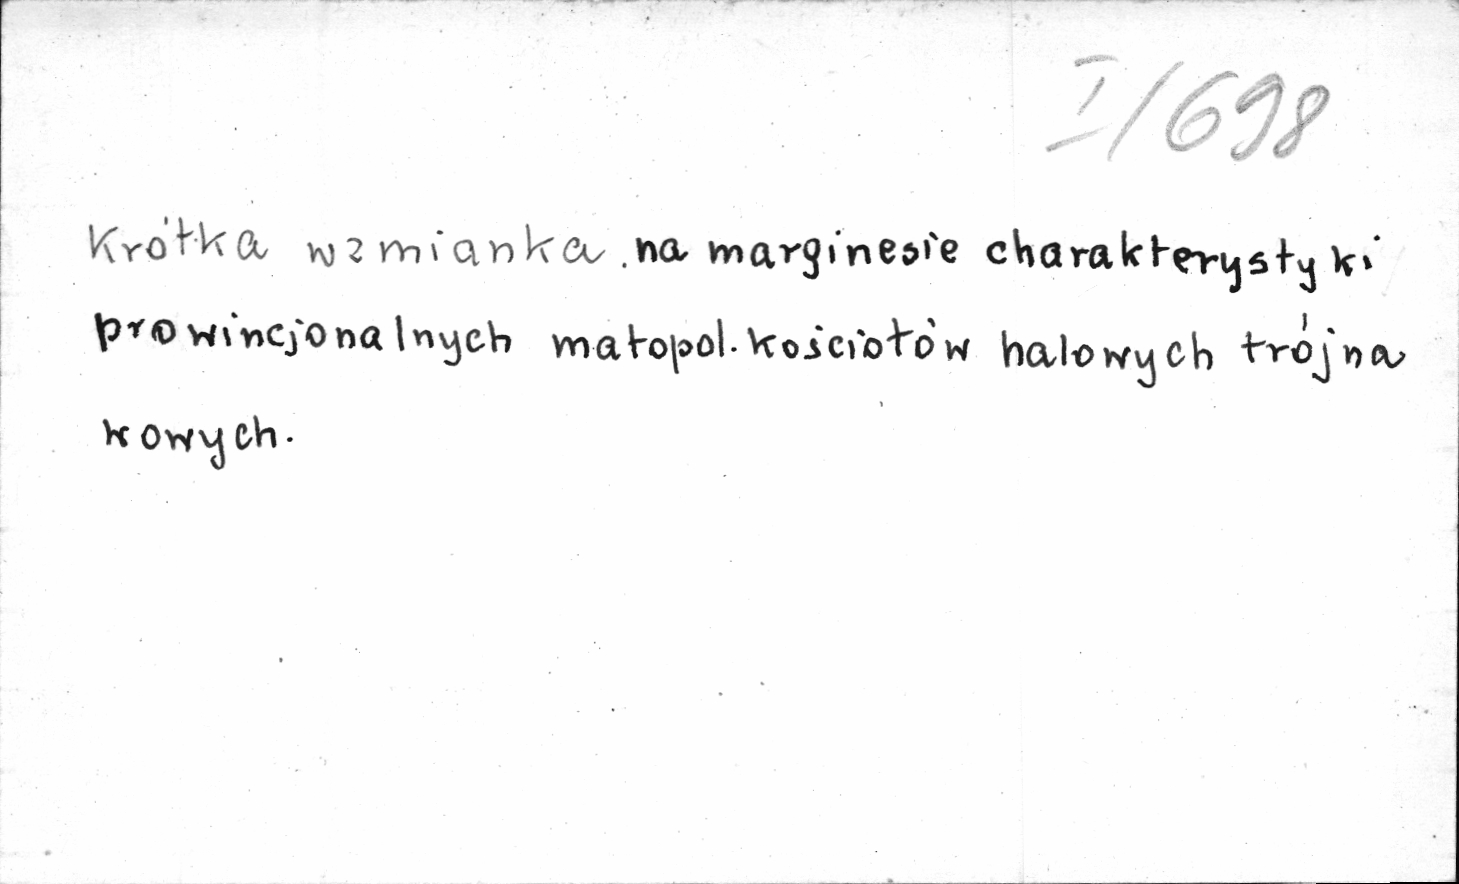 I/698
Krótka wzmianka na marginesie charakterystyki
prowincjonalnych małopol. kościołów halowych trójna
wowych.